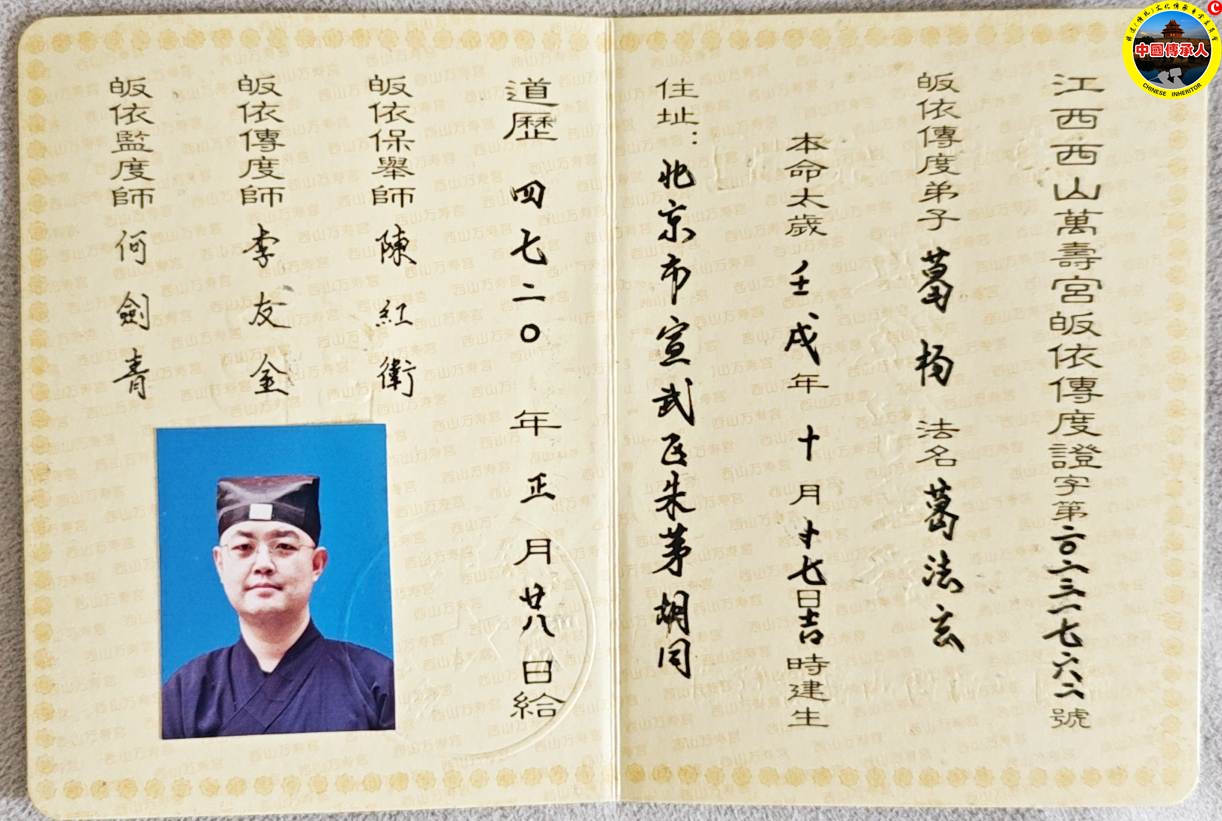 江西西山萬壽宮皈依傳度證字第二〇二三一七六二號
皈依傳度弟子 葛楊 法名 葛法玄
本命太歲 壬戌年 十月 廿七日吉時建生
住址：北京市宣武区朱茅胡同
道歷 四七二〇 年 正 月 廿八 日給
皈依保舉師 陳紅衛
皈依傳度師 李友金
皈依監度師 何劍青
中國傳承人
CHINESE INHERITOR
西山万寿宫